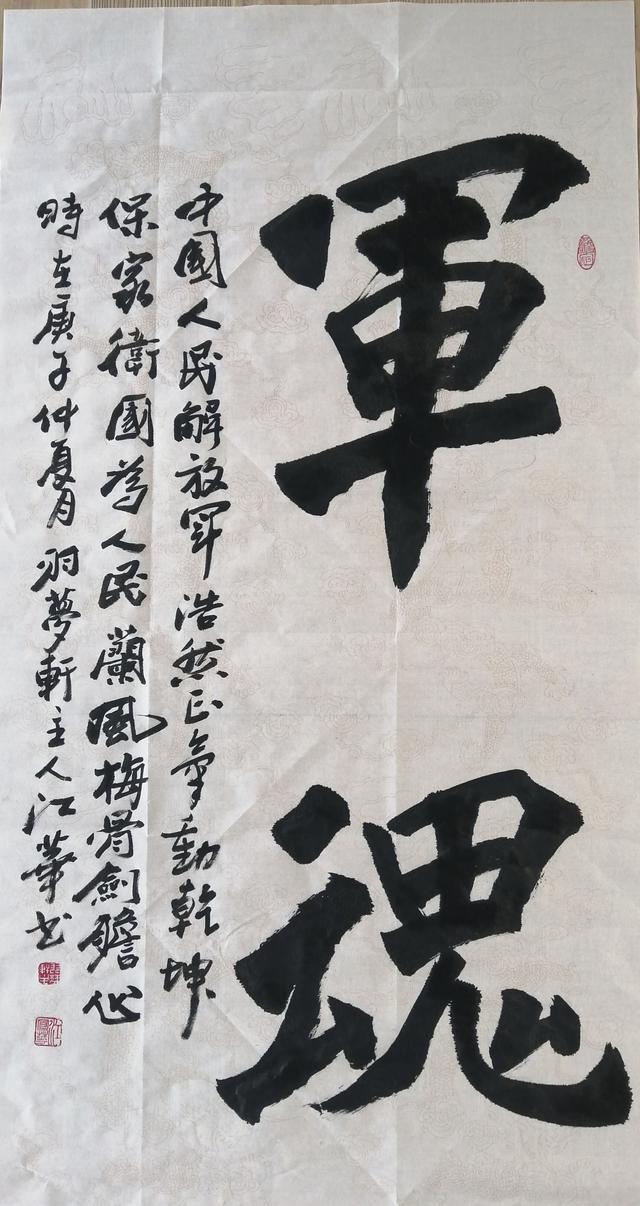 軍魂
中國人民解放軍浩然正氣動乾坤
保家衛國為人民蘭風梅骨劍膽心
時在庚子仲夏月羽夢軒主人江華书